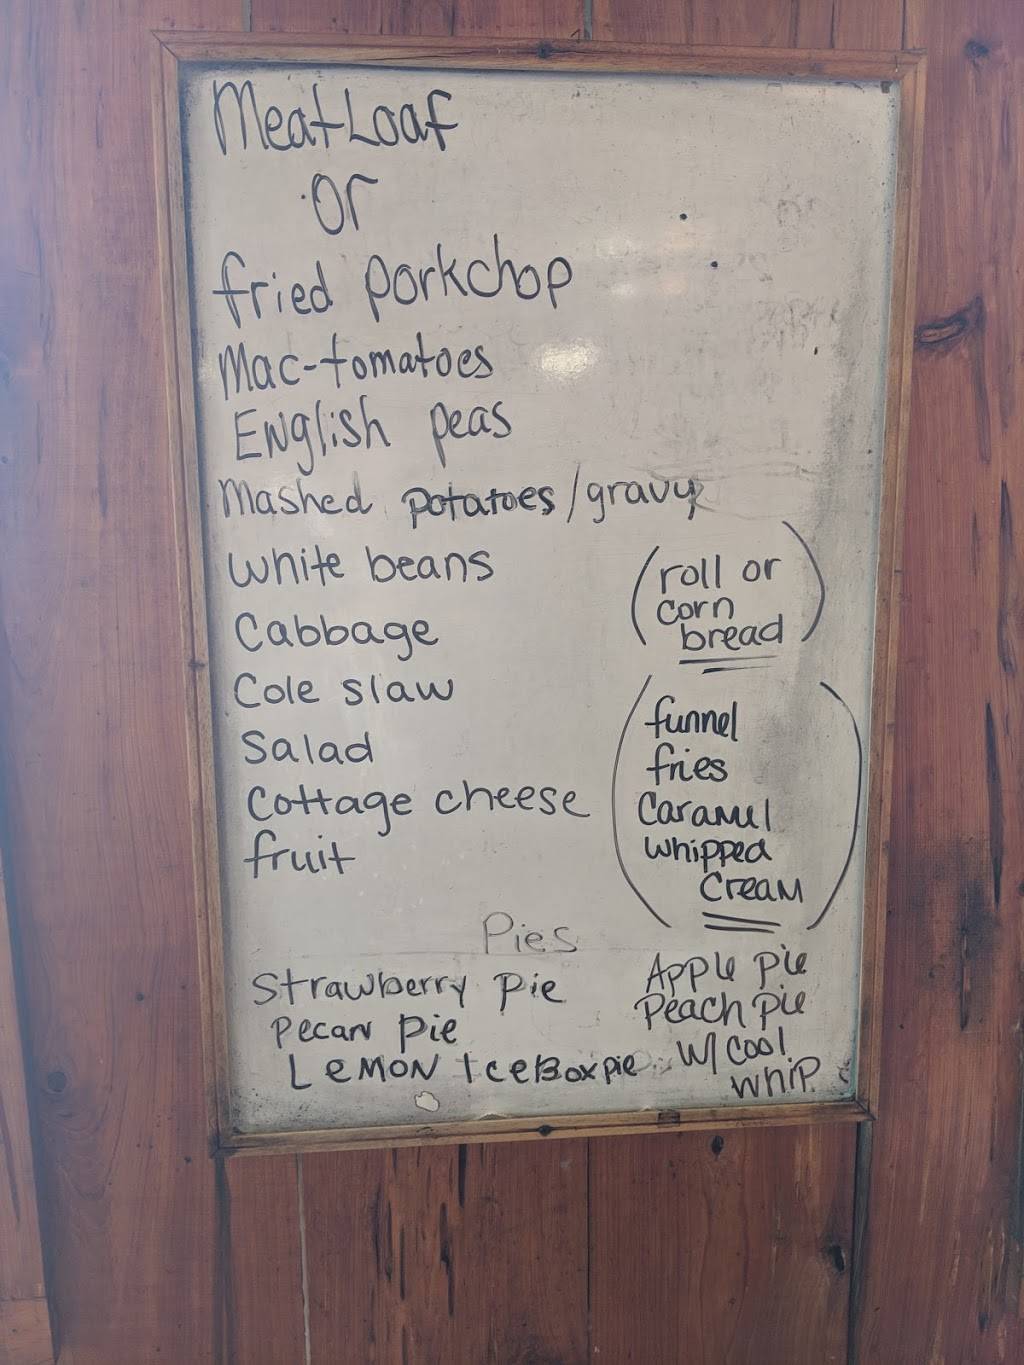 Meatloaf
or
fried porkchop
Mac-tomatoes
English peas
Mashed potatoes/gravy
white beans
Cabbage
Cole slaw
Salad
Cottage cheese
fruit
(roll or
corn
bread)
(funnel
fries
Caramel
whipped
cream)
Pies
Strawberry pie
Pecan pie
Lemon IceBox pie
Apple pie
Peach pie
w/ cool
whip